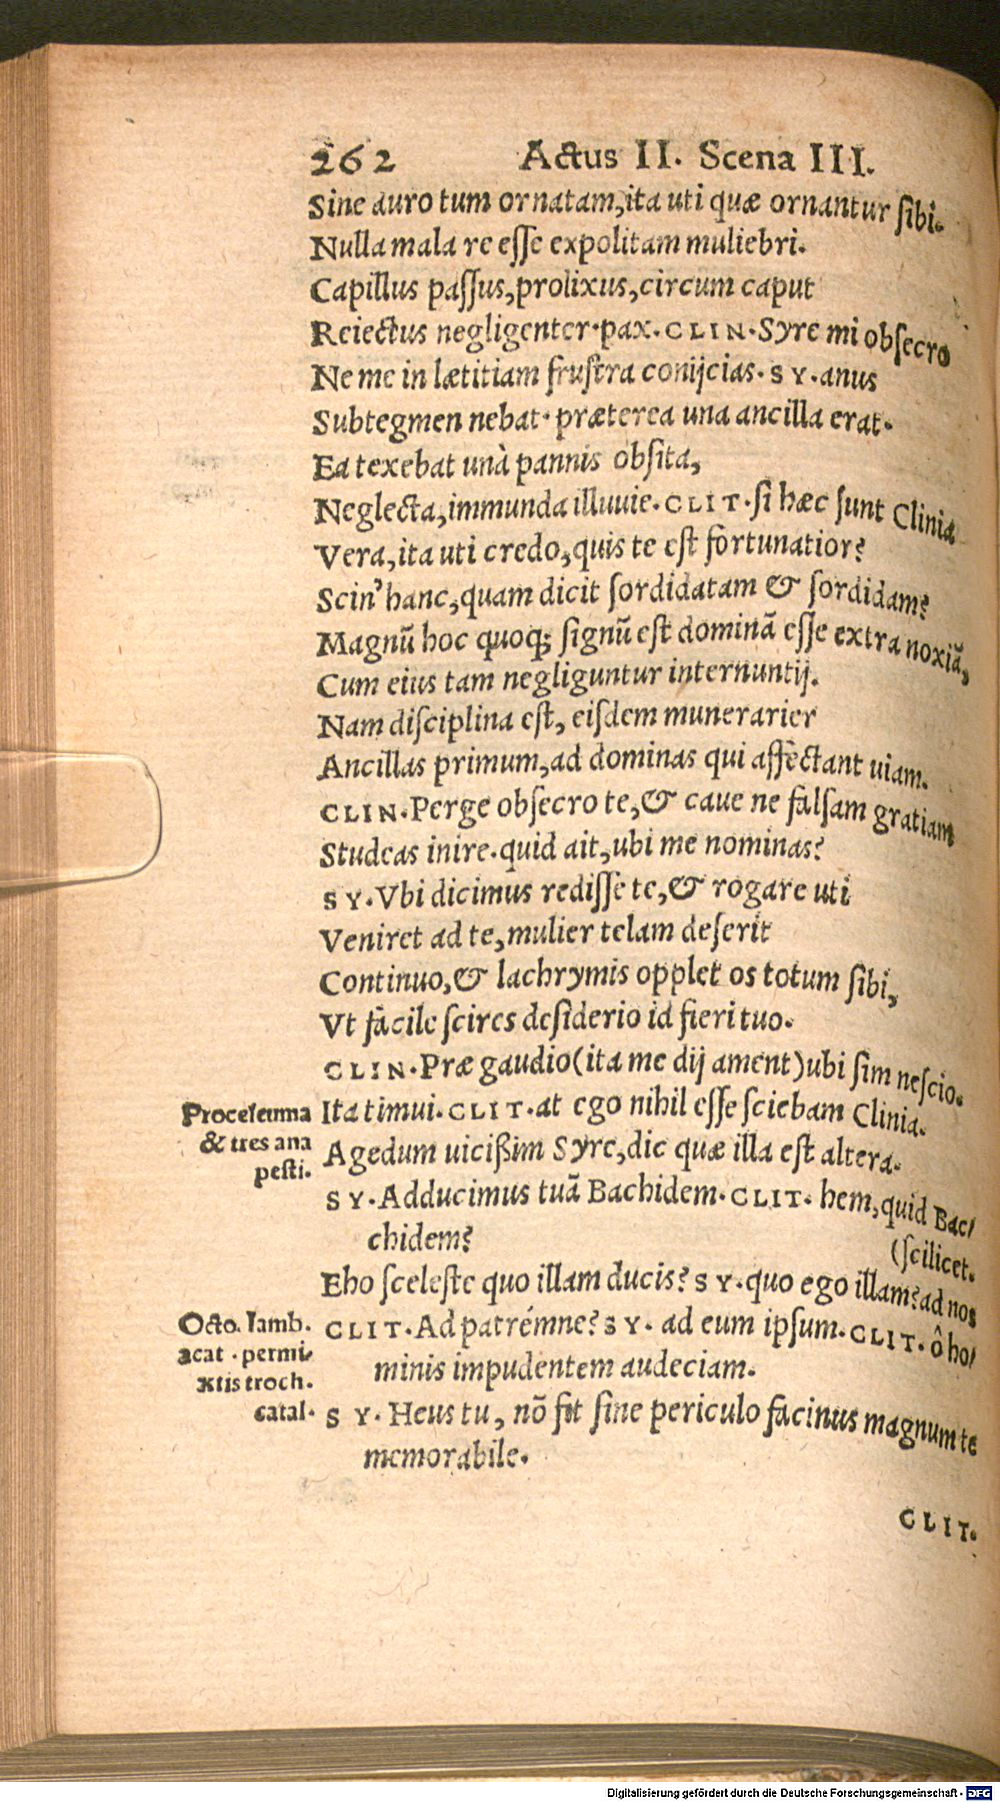 262 Actus II. Scena III.
Sine auro tum ornatam, ita uti quæ ornantur sibi.
Nulla mala re esse expolitam muliebri.
Capillus passus, prolixus, circum caput
Reiectus negligenter. pax. CLIN. Syre mi obsecro
Ne me in lætitiam frustra conijcias. SY. anus
Subtegmen nebat. præterea una ancilla erat.
Ea texebat unà pannis obsita,
Neglecta, immunda illuuie. CLIT. si hæc sunt Clinia
Vera, ita uti credo, quis te est fortunatior?
Scin' hanc, quam dicit sordidatam & sordidam?
Magnũ hoc quoq; signũ est dominã esse extra noxiã,
Cum eius tam negliguntur internuntij.
Nam disciplina est, eisdem munerarier
Ancillas primum, ad dominas qui affectant uiam.
CLIN. Perge obsecro te, & caue ne falsam gratiam
Studeas inire. quid ait, ubi me nominas?
SY. Vbi dicimus redisse te, & rogare uti
Veniret ad te, mulier telam deserit
Continuo, & lachrymis opplet os totum sibi,
Vt facile scires desiderio id fieri tuo.
CLIN. Præ gaudio (ita me dij ament) ubi sim nescio.
Proceleuma
& tres ana
pesti.
Ita timui. CLIT. at ego nihil esse sciebam Clinia.
Agedum uicißim Syre, dic quæ illa est altera.
SY. Adducimus tuã Bachidem. CLIT. hem, quid Bac/
chidem? (scilicet.
Eho sceleste quo illam ducis? SY. quo ego illam? ad nos
Octo. Iamb.
acat. permi/
xtis troch.
catal.
CLIT. Ad patrémne? SY. ad eum ipsum. CLIT. ô ho/
minis impudentem audeciam.
SY. Heus tu, nõ fit sine periculo facinus magnum te
memorabile.
CLIT.
Digitalisierung gefördert durch die Deutsche Forschungsgemeinschaft - DFG